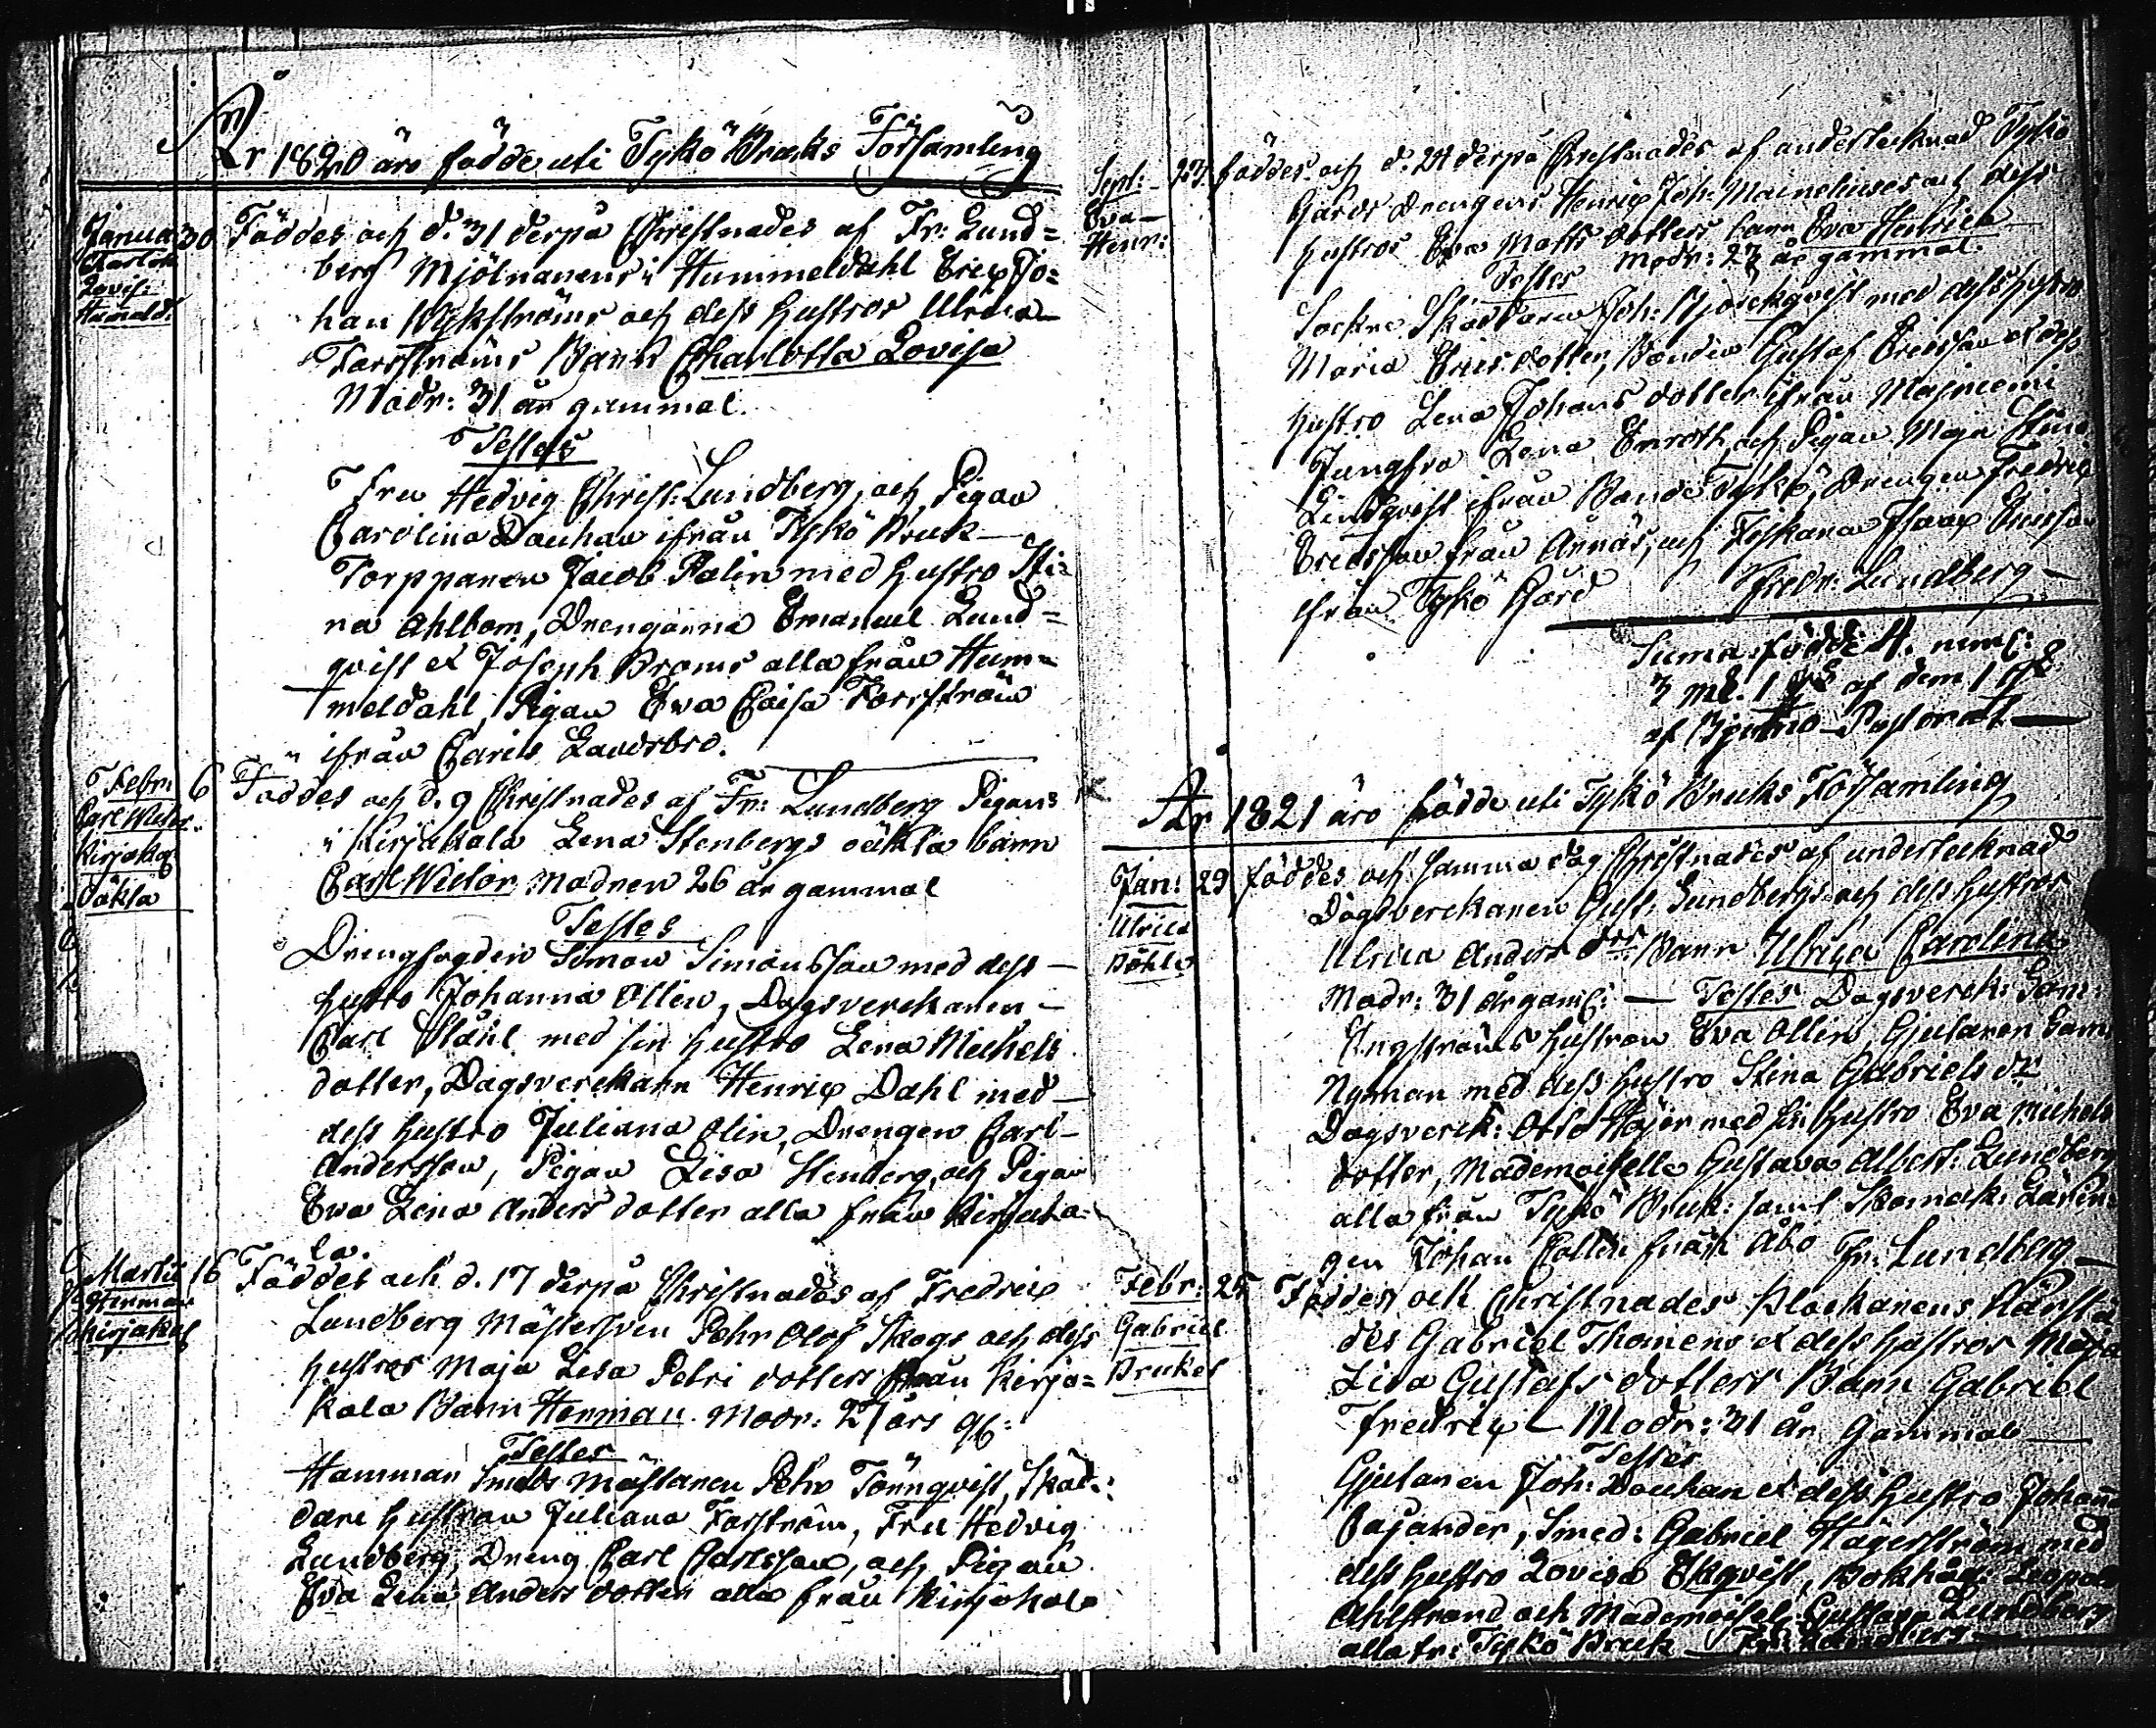 År 1820 äro födde uti Tykö Bruks Församling
Janua: 30 Föddes och d. 31 derpå Christnades af Fr: Lund=
Charlott:
Lovis:
Humeld:
berg Mjölnarens i Hummeldahl Eric Jo=
han Wikströms och dess hustros Ulrica
Forsströms Barn Charlotta Lovisa
Modr: 31 år gammal.
Testes
Fru Hedvig Christ: Lundberg, och Pigan
Carolina Douhan ifrån Tykö Bruk
Torpparen Jacob Palin med hustro Sti=
na Ahlbom, Drengarna Emanuel Lund=
qvist et Joseph Broms alla från Hum=
meldahl, Pigan Eva Caisa Forsström
ifrån Caris Landsbro.
Febr: 6 Föddes och d. 9 Christnades af Fr: Lundberg Pigans
Carl Wictor
Kirjakal
Oäkta
i Kirjakala Lena Stenbergs oäkta barn
Carl Wictor Modren 26 år gammal
Testes
Drengfogden Simon Simonsson med dess
hustro Johanna Ollin, Dagsverckaren
Carl Ståhl med sin hustro Lena Michels
dotter, Dagsverckarn Henric Dahl med
dess hustro Juliana Olin, Drengen Carl
Andersson, Pigan Lisa Stenberg, och Pigan
Eva Lena Anders dotter alla från Kirjaka=
la.
Martii 16 Föddes och d. 17 derpå Christnades af Fredric
Herman
Kirjakal
Lundberg Mästersven Pehr Olof Skogs och dess
hustros Maja Lisa Petri dotters från Kirja=
kala Barn Herman. Modr: 27 års gl:
Testes
Hammar Smeds Mästaren Pehr Tönnqvist, Skäd=
dare hustrun Juliana Forström, Fru Hedvig
Lundberg, Dreng Carl Carlsson, och Pigan
Eva Lena Anders dotter alla från Kirjakala
Sept: 27 föddes och d. 28 derpå Christnades af undertecknad Tykö
Eva
Henr:
Gårds Drengens Henric Joh: och dess
hustros Eva Matts dotters barn Eva Henrica
Modr: 27 år gammal.
Testes
Sockne Skräddaren Joh: Björckqvist med dess hustro
Maria Erics dotter, Bonden Gustaf Ericsson et dess
hustro Lena Johans dotter ifrån Majniemi
Jungfru Lena Enroth, och Pigan Maja Stina
Lindqvist ifrån Bonde Tykö, Drengen Fredric
Ericsson från Ånnäs, och Fiskaren Isaac Ericsson
ifrån Tykö Gård Fredr: Lundberg
Suma födde 4. neml:
3 Mk. 1 Qk af dem 1 Qk
af Bjerno Pastorat
År 1821 äro födde uti Tykö Bruks Församling
Jan: 29 föddes och samma dag Christnades af undertecknad
Ulrica
Böhle
Dagsverckaren Gust: Lundbergs och dess hustros
Ulrica Anders drs Barn Ulrica Carolina
Modr: 31 år gaml: — Testes Dagsverck: Sam:
Engströms hustrun Eva Ollin, Gjutaren Sam:
Nyman med dess hustro Stina Gabriels dr
Dagsverck: Otto Höijer med sin hustro Eva Michels
dotter, Mademoiselle Gustava Albert: Lundberg
alla från Tykö Bruk: samt Skomak: Lärlin=
gen Johan Collin från Åbo Fr: Lundberg
Febr: 25 Föddes och Christnades Klockarens
Gabriel
Bruket
des Gabriel Thomens et dess hustros Maja
Lisa Gustafs dotters Barn Gabriel
Fredric — Modr: 31 år gammal
Testes
Gjutaren Joh: Douhan et dess hustro Johanna
Cajander, Smed: Gabriel Hägerström med
dess hustro Lovisa Ekqvist, Bokhåll: Leopold
Ahlstrand och Mademoisel: Gustava Lundberg
alla fr: Tykö Bruk Fr: Lundberg